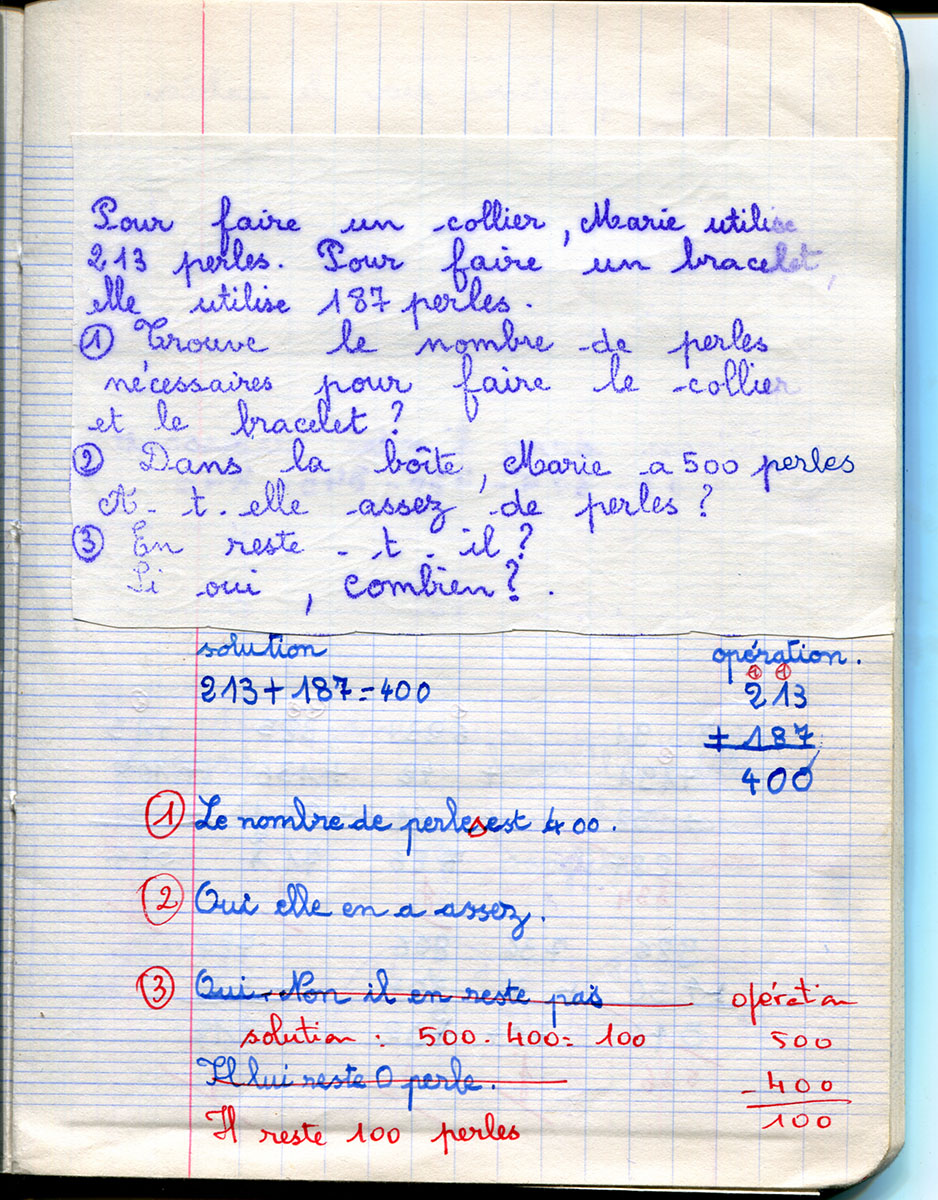 Pour faire un collier, Marie utilise
213 perles. Pour faire un bracelet,
elle utilise 187 perles.
① Trouve le nombre de perles
nécessaires pour faire le collier
et le bracelet ?
② Dans la boîte, Marie a 500 perles
A-t-elle assez de perles ?
③ En reste-t-il ?
Si oui, combien ? .
solution opération.
213+187=400 ① ①
213
+ 187
400
① Le nombre de perles est 400.
② Oui elle en a assez.
③ Oui. Non il en reste pas opération
solution : 500 - 400 = 100 500
Il lui reste 0 perle. - 400
Il reste 100 perles 100